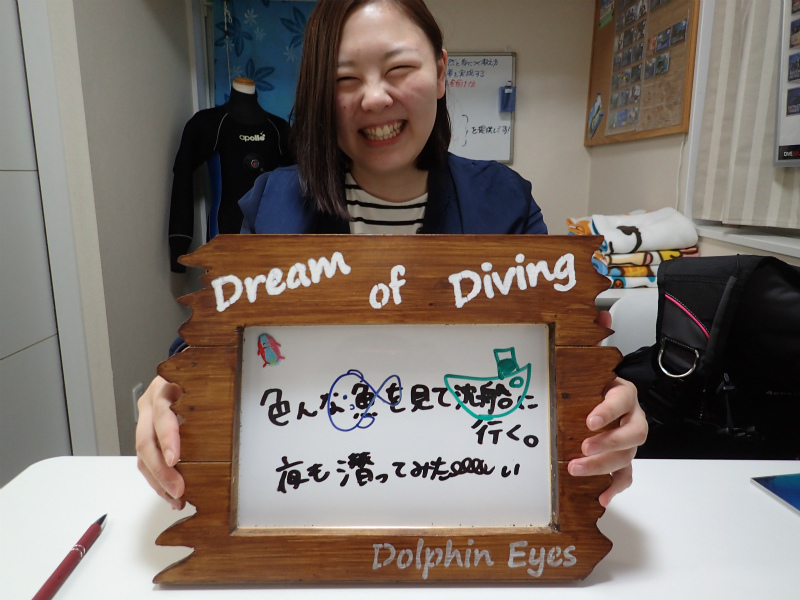 Dream of Diving
色んな魚を見て沈船に
行く。
夜も潜ってみたい
Dolphin Eyes
apollo
を提供します!